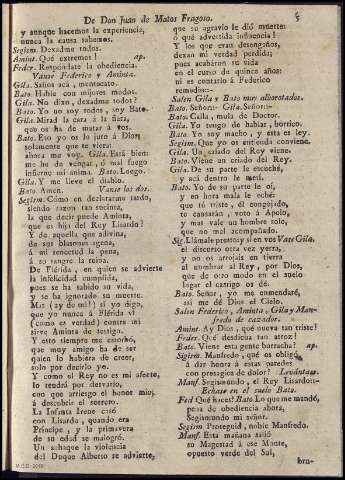 De Don Juan de Matos Fragoso. 5
y aunque hacemos la experiencia,
nunca la causa sabemos.
Segism. Dexadme todos.
Amint. Qué extremos! ap.
Feder. Respóndate la obediencia.
Vanse Federico y Aminta.
Gila. Salios acá, mentecato.
Bato. Hable con mejores modos.
Gila. No dixo, dexadme todos?
Bato. Yo no soy todos, soy Bato.
Gila. Mirad la cara á la ñata,
que os ha de matar á vos.
Bato. Eso yo os lo juro á Dios;
solamente que viera
ahora me voy. Gila. Está bien:
me he de vengar, ó mal fuego
infierno mi anima. Bato. Luego.
Gila. Y me lleve el diablo.
Bato. Amen. Vanse los dos.
Segism. Cómo en declararme tardo,
siendo razon tan escrita,
la que decir puede Aminta,
que es hija del Rey Lisardo?
Y de aquella que adivina,
de sus blasones agena,
á mi senectud la pena,
á su sangre la ruina.
De Flérida, en quien se advierte
la infelicidad cumplida,
pues se ha sabido su vida,
y se ha ignorado su muerte.
Mas (ay de mí!) si yo digo,
que yo nunca á Flérida vi
(como es verdad) contra mí
sirve Aminta de testigo.
Y esto siempre me esorbó,
que muy amigo ha de ser
quien lo hubiera de creer,
solo por decirlo yo.
Y como el Rey no es mi afecto,
lo tendrá por desvarío,
con que arriesgo el honor mio,
á descubrir el secreto.
La Infanta Irene crió
con Lisardo, quando era
Príncipe, y la primavera
de su edad se malogró.
Un achaque la violencia
del Duque Alberto se advierte,
que su agravio le dió muerte:
ó qué advertida influencia!
Y los que eran desengaños,
dexan mi verdad perdida;
pues acabáron su vida
en el curso de quince años:
ni es contarlo á Federico
remedio:-
Salen Gila y Bato muy alborotados.
Bato. Señor:- Gila. Señor:-
Bato. Calla, mula de Doctor.
Gila. Yo tengo de hablar, borrico.
Bato. Yo soy macho, y esta es ley.
Segism. Que yo os entienda conviene.
Gila. Un criado del Rey viene.
Bato. Viene un criado del Rey.
Gila. De su parte le escuché,
y acá dentro le metí.
Bato. Yo de su parte le oí,
y en hora mala le eché:
que tú triste, él congojado,
te cansarán, voto á Apolo,
y mas vale un hombre solo,
que no mal acompañado.
Sig. Llámale presto; y si en vos Vase Gila.
el discurso otra vez yerra,
y no os arrojais en tierra
al nombrar al Rey, por Dios,
que de otro modo en el suelo
logar el castigo os dé.
Bato. Señor, yo me enmendaré,
así me dé Dios el Cielo.
Salen Federico, Aminta, Gila y Man-
fredo de cazador.
Amint. Ay Dios, qué nueva tan triste!
Feder. Qué desdicha tan atroz!
Bato. Viene esta gente borracha? ap.
Sigism. Manfredo, qué os obliga
á dar honra á estas paredes
con presagios de dolor? Levántase.
Manf. Segismundo, el Rey Lisardo:-
Echase en el suelo Bato.
Fed Qué haces? Bato. Lo que me mandó,
pesa de obediencia ahora,
Segismundo en su nombre.
Segism Proseguid, noble Manfredo.
Manf. Esta mañana salió
su Magestad á ese Monte,
opuesto verde del Sol,
bru-